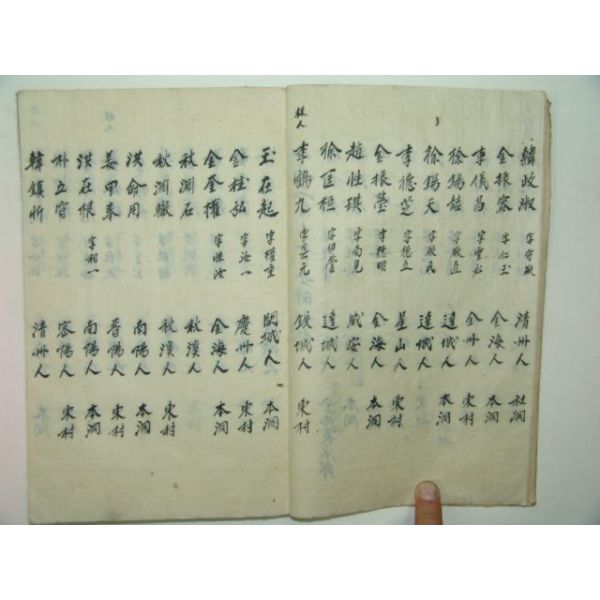 韓政淑 字守敬 清州人 社洞
金振容 字仁玉 金海人 本洞
李儀昌 字雲五 全州人 東村
徐錫喆 字敬直 達城人 本洞
徐錫天 字敬民 達城人 本洞
李德芝 字德立 星山人 東村
金振瑩 字德明 金海人 本洞
趙性琪 字南見 咸安人
徐匡桓 字伊營 達城人
社人
李鶴九 字 元 鐵城人 東村
玉在起 字權重 開城人 本洞
金柱弘 字汝一 慶州人 東村
金奎權 字性汝 金海人 本洞
秋淵石 秋溪人
秋淵轍 秋溪人 東村
洪命用 南陽人 本洞
姜甲秦 晋陽人 東村
洪在恨 字相一 南陽人 本洞
朴立守 密陽人 東村
韓鎮昕 清州人